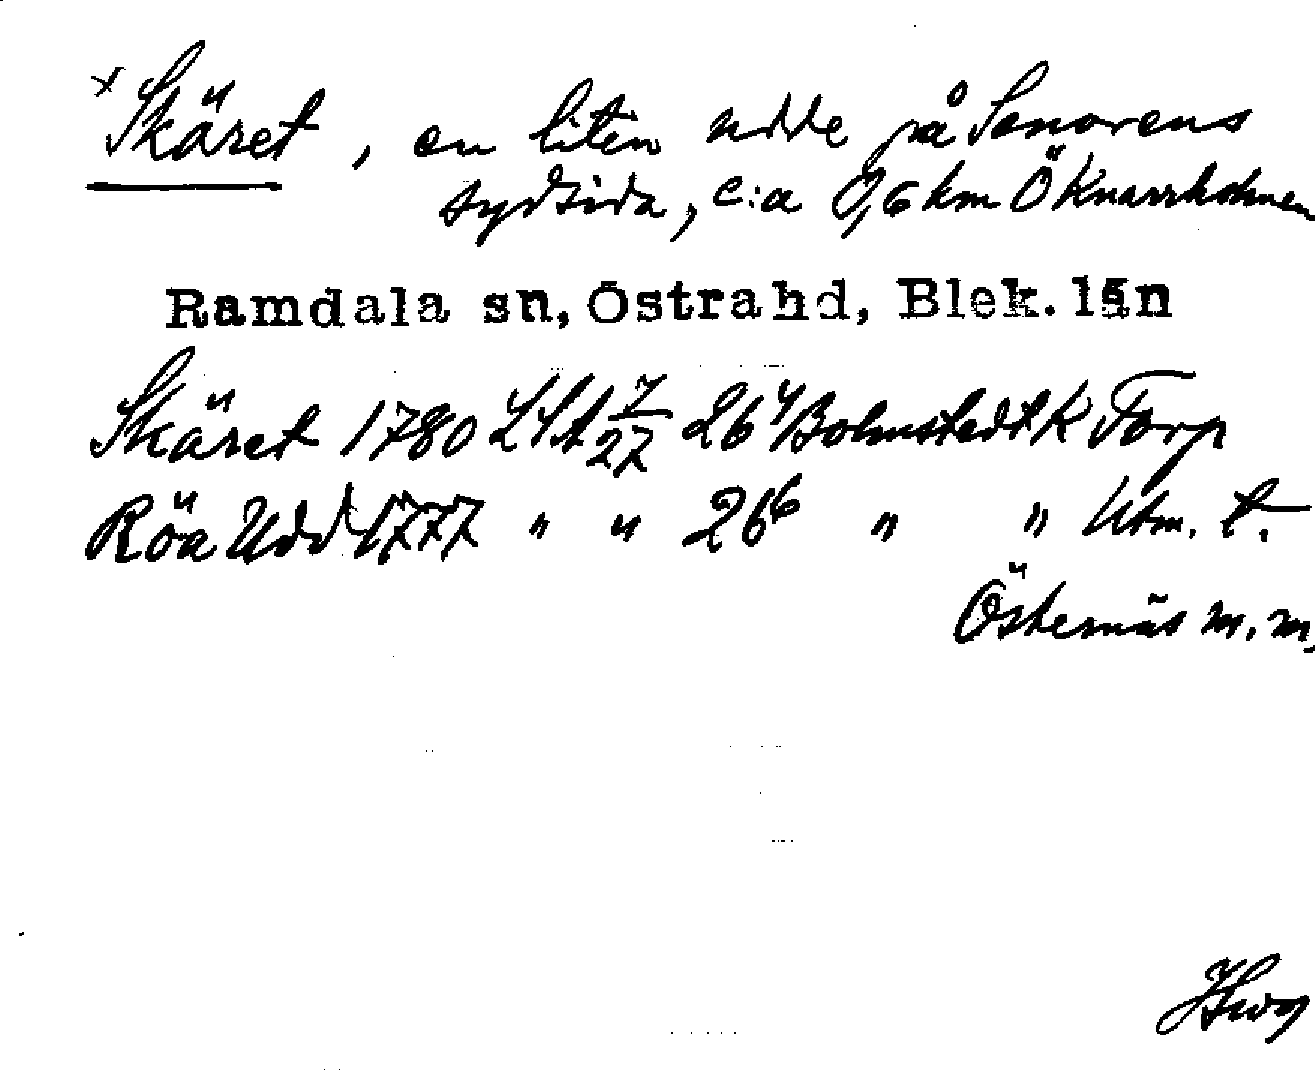 × Skäret, en liten udde på Senorens
sydsida, c:a 0,6 km Ö Knarrholmen
Ramdala sn, Östra hd, Blek. län
Skäret 1780 LSA 7/27 26 4 Bolmstedt K Torp
Röa Udd 1777 " " 26 6 " " Utm. t.
Östernäs m.m.